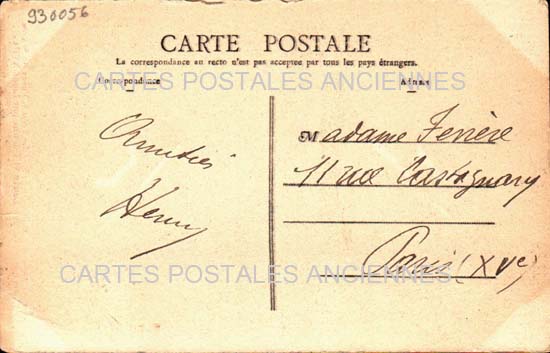 930056
CARTE POSTALE
La correspondance au recto n'est pas acceptée par tous les pays étrangers.
CARTES POSTALES ANCIENNES
Correspondance
Adresse
Amitiés
Henry
Madame Ferrère
11 rue Castagnary
Paris (XVe)
CARTES POSTALES ANCIENNES